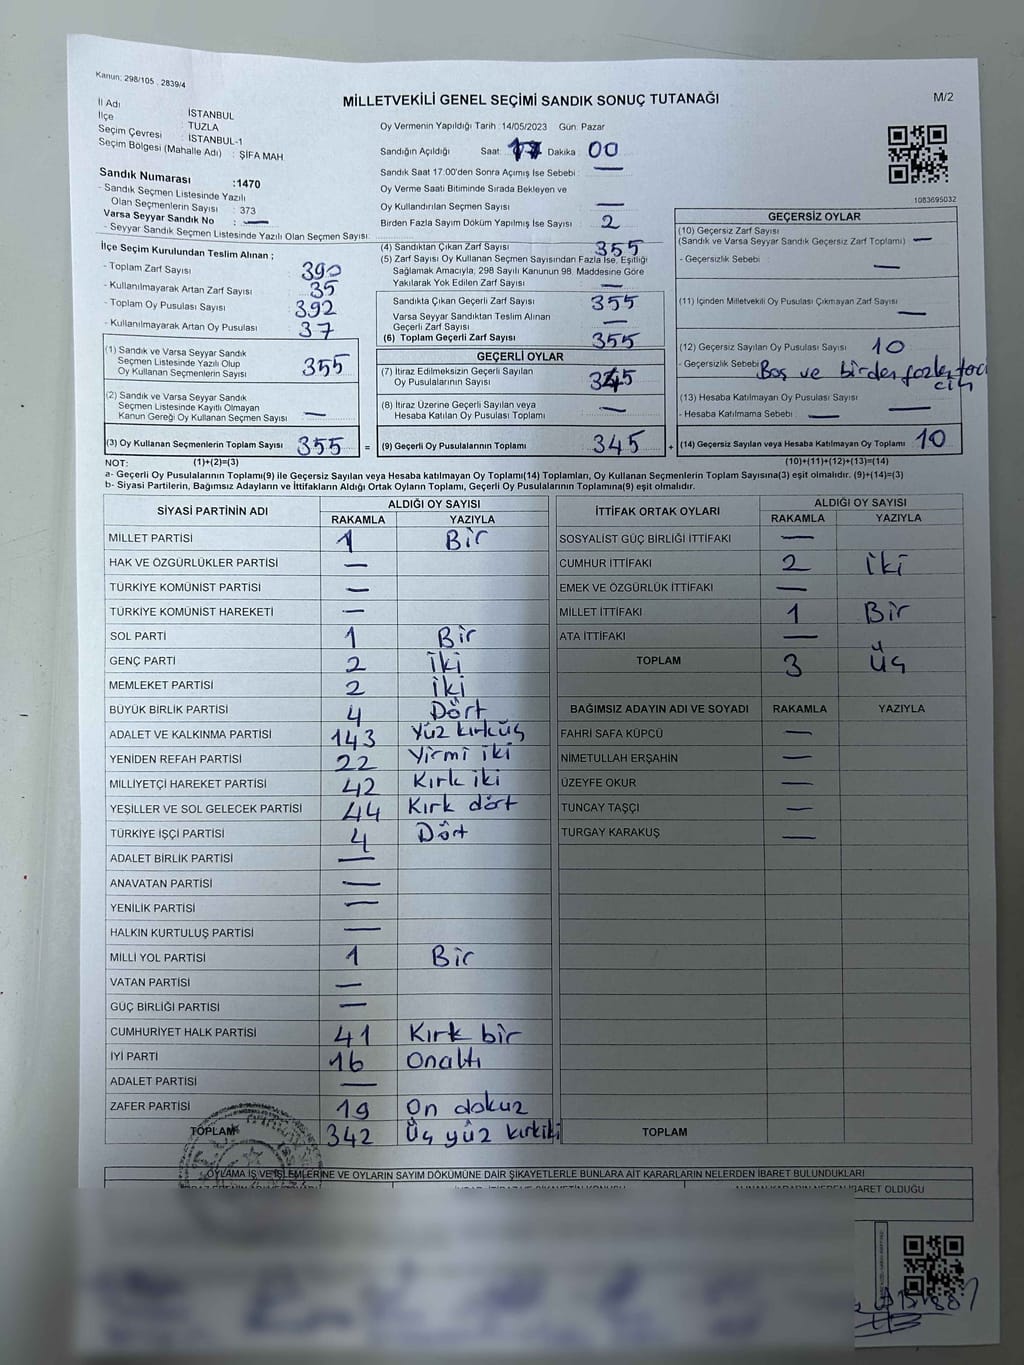 Kanun: 298/105 . 2839/4
MİLLETVEKİLİ GENEL SEÇİMİ SANDIK SONUÇ TUTANAĞI
M/2
İl Adı : İSTANBUL
İlçe : TUZLA
Seçim Çevresi : İSTANBUL-1
Seçim Bölgesi (Mahalle Adı) : ŞİFA MAH
Sandık Numarası :1470
- Sandık Seçmen Listesinde Yazılı
Olan Seçmenlerin Sayısı : 373
Varsa Seyyar Sandık No : —
- Seyyar Sandık Seçmen Listesinde Yazılı Olan Seçmen Sayısı:
Oy Vermenin Yapıldığı Tarih :14/05/2023 Gün: Pazar
Sandığın Açıldığı Saat: 17 Dakika 00
Sandık Saat 17:00'den Sonra Açımış İse Sebebi : —
Oy Verme Saati Bitiminde Sırada Bekleyen ve
Oy Kullandırılan Seçmen Sayısı : —
Birden Fazla Sayım Döküm Yapılmış İse Sayısı : 2
1083695032
İlçe Seçim Kurulundan Teslim Alınan ;
- Toplam Zarf Sayısı : 390
- Kullanılmayarak Artan Zarf Sayısı : 35
- Toplam Oy Pusulası Sayısı : 392
- Kullanılmayarak Artan Oy Pusulası : 37
(1) Sandık ve Varsa Seyyar Sandık
Seçmen Listesinde Yazılı Olup
Oy Kullanan Seçmenlerin Sayısı : 355
(2) Sandık ve Varsa Seyyar Sandık
Seçmen Listesinde Kayıtlı Olmayan
Kanun Gereği Oy Kullanan Seçmen Sayısı : —
(3) Oy Kullanan Seçmenlerin Toplam Sayısı : 355 =
(4) Sandıktan Çıkan Zarf Sayısı : 355
(5) Zarf Sayısı Oy Kullanan Seçmen Sayısından Fazla İse, Eşitliği
Sağlamak Amacıyla, 298 Sayılı Kanunun 98. Maddesine Göre
Yakılarak Yok Edilen Zarf Sayısı : —
Sandıkta Çıkan Geçerli Zarf Sayısı : 355
Varsa Seyyar Sandıktan Teslim Alınan
Geçerli Zarf Sayısı : —
(6) Toplam Geçerli Zarf Sayısı : 355
GEÇERLİ OYLAR
(7) İtiraz Edilmeksizin Geçerli Sayılan
Oy Pusulalarının Sayısı : 345
(8) İtiraz Üzerine Geçerli Sayılan veya
Hesaba Katılan Oy Pusulası Toplamı : —
(9) Geçerli Oy Pusulalarının Toplamı : 345 +
GEÇERSİZ OYLAR
(10) Geçersiz Zarf Sayısı
(Sandık ve Varsa Seyyar Sandık Geçersiz Zarf Toplamı) : —
- Geçersizlik Sebebi : —
(11) İçinden Milletvekili Oy Pusulası Çıkmayan Zarf Sayısı : —
(12) Geçersiz Sayılan Oy Pusulası Sayısı : 10
- Geçersizlik Sebebi: Boş ve birden fazla
(13) Hesaba Katılmayan Oy Pusulası Sayısı : —
- Hesaba Katılmama Sebebi : —
(14) Geçersiz Sayılan veya Hesaba Katılmayan Oy Toplamı : 10
NOT: (1)+(2)=(3) (10)+(11)+(12)+(13)=(14)
a- Geçerli Oy Pusulalarının Toplamı(9) ile Geçersiz Sayılan veya Hesaba katılmayan Oy Toplamı(14) Toplamları, Oy Kullanan Seçmenlerin Toplam Sayısına(3) eşit olmalıdır. (9)+(14)=(3)
b- Siyasi Partilerin, Bağımsız Adayların ve İttifakların Aldığı Ortak Oyların Toplamı, Geçerli Oy Pusulalarının Toplamına(9) eşit olmalıdır.
SİYASİ PARTİNİN ADI ALDIĞI OY SAYISI
RAKAMLA YAZIYLA
MİLLET PARTİSİ 1 Bir
HAK VE ÖZGÜRLÜKLER PARTİSİ —
TÜRKİYE KOMÜNİST PARTİSİ —
TÜRKİYE KOMÜNİST HAREKETİ —
SOL PARTİ 1 Bir
GENÇ PARTİ 2 İki
MEMLEKET PARTİSİ 2 İki
BÜYÜK BİRLİK PARTİSİ 4 Dört
ADALET VE KALKINMA PARTİSİ 143 Yüz kırküç
YENİDEN REFAH PARTİSİ 22 Yirmi iki
MİLLİYETÇİ HAREKET PARTİSİ 42 Kırk iki
YEŞİLLER VE SOL GELECEK PARTİSİ 44 Kırk dört
TÜRKİYE İŞÇİ PARTİSİ 4 Dört
ADALET BİRLİK PARTİSİ —
ANAVATAN PARTİSİ —
YENİLİK PARTİSİ —
HALKIN KURTULUŞ PARTİSİ —
MİLLİ YOL PARTİSİ 1 Bir
VATAN PARTİSİ —
GÜÇ BİRLİĞİ PARTİSİ —
CUMHURİYET HALK PARTİSİ 41 Kırk bir
İYİ PARTİ 16 Onaltı
ADALET PARTİSİ —
ZAFER PARTİSİ 19 On dokuz
TOPLAM 342 Üç yüz kırkiki
İTTİFAK ORTAK OYLARI ALDIĞI OY SAYISI
RAKAMLA YAZIYLA
SOSYALİST GÜÇ BİRLİĞİ İTTİFAKI —
CUMHUR İTTİFAKI 2 İki
EMEK VE ÖZGÜRLÜK İTTİFAKI —
MİLLET İTTİFAKI 1 Bir
ATA İTTİFAKI —
TOPLAM 3 Üç
BAĞIMSIZ ADAYIN ADI VE SOYADI RAKAMLA YAZIYLA
FAHRİ SAFA KÜPCÜ —
NİMETULLAH ERŞAHİN —
ÜZEYFE OKUR —
TUNCAY TAŞÇI —
TURGAY KARAKUŞ —
TOPLAM
OYLAMA İŞ VE İŞLEMLERİNE VE OYLARIN SAYIM DÖKÜMÜNE DAİR ŞİKAYETLERLE BUNLARA AİT KARARLARIN NELERDEN İBARET BULUNDUKLARI